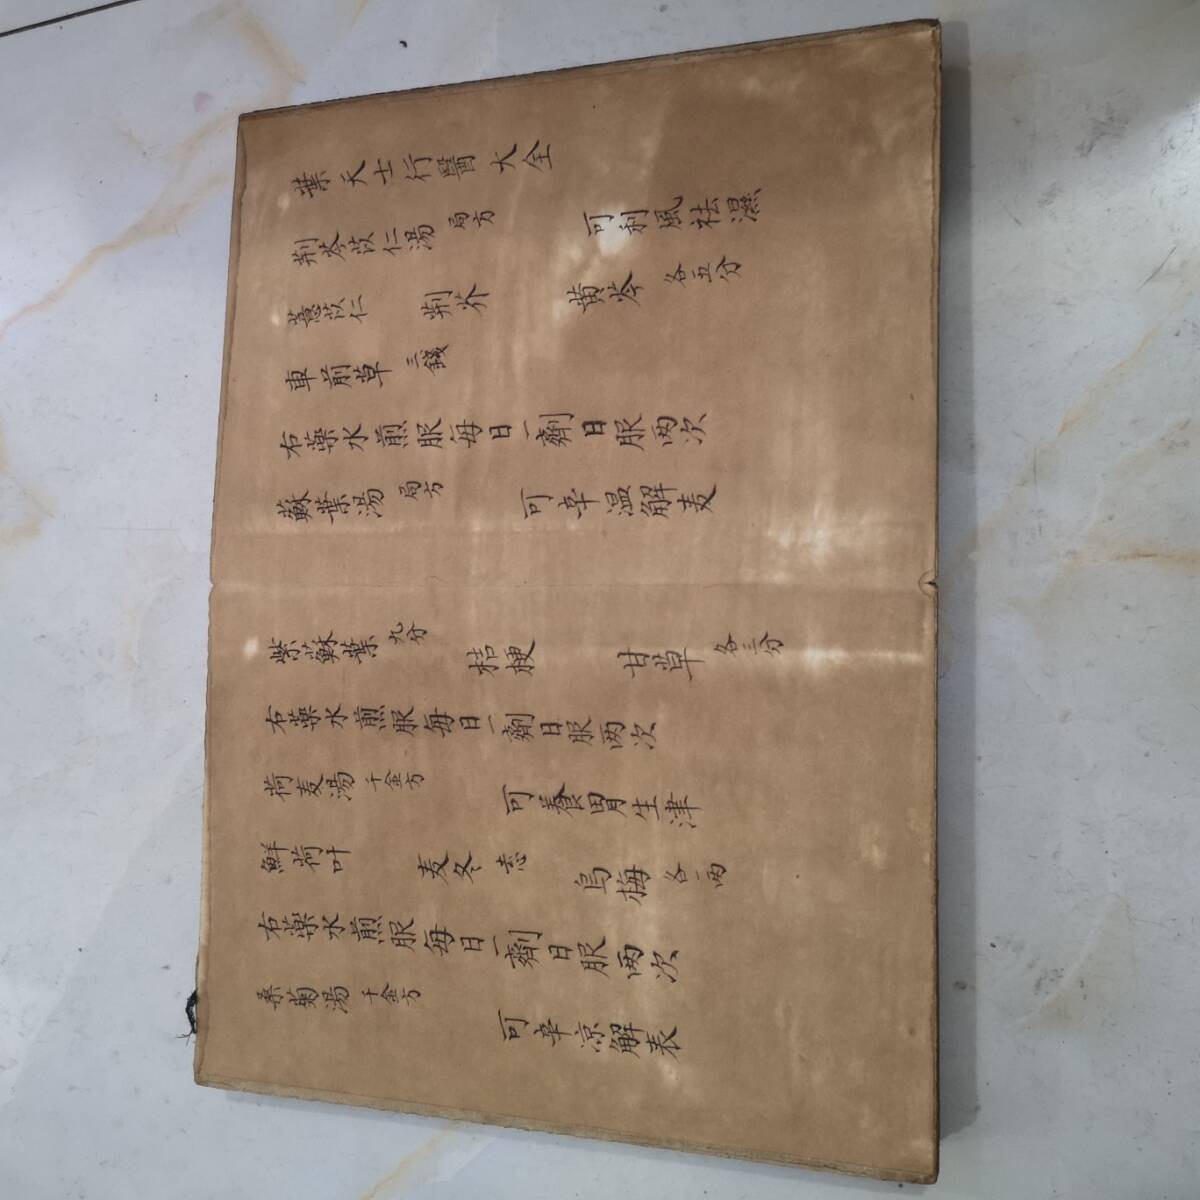 葉天士行醫大全
荆芩苡仁湯 局方 可利風祛濕
薏苡仁 荆芥 黄芩 各五分
車前草 三錢
右藥水煎服每日一劑日服两次
蘇葉湯 局方 可辛温解麦
紫蘇葉 九分 桔梗 甘草 各三分
右藥水煎服每日一劑日服两次
荷麦湯 千金方 可養胃生津
鮮荷叶 麦冬 去 烏梅 各一两
右藥水煎服每日一劑日服两次
桑菊湯 千金方 可辛凉解表